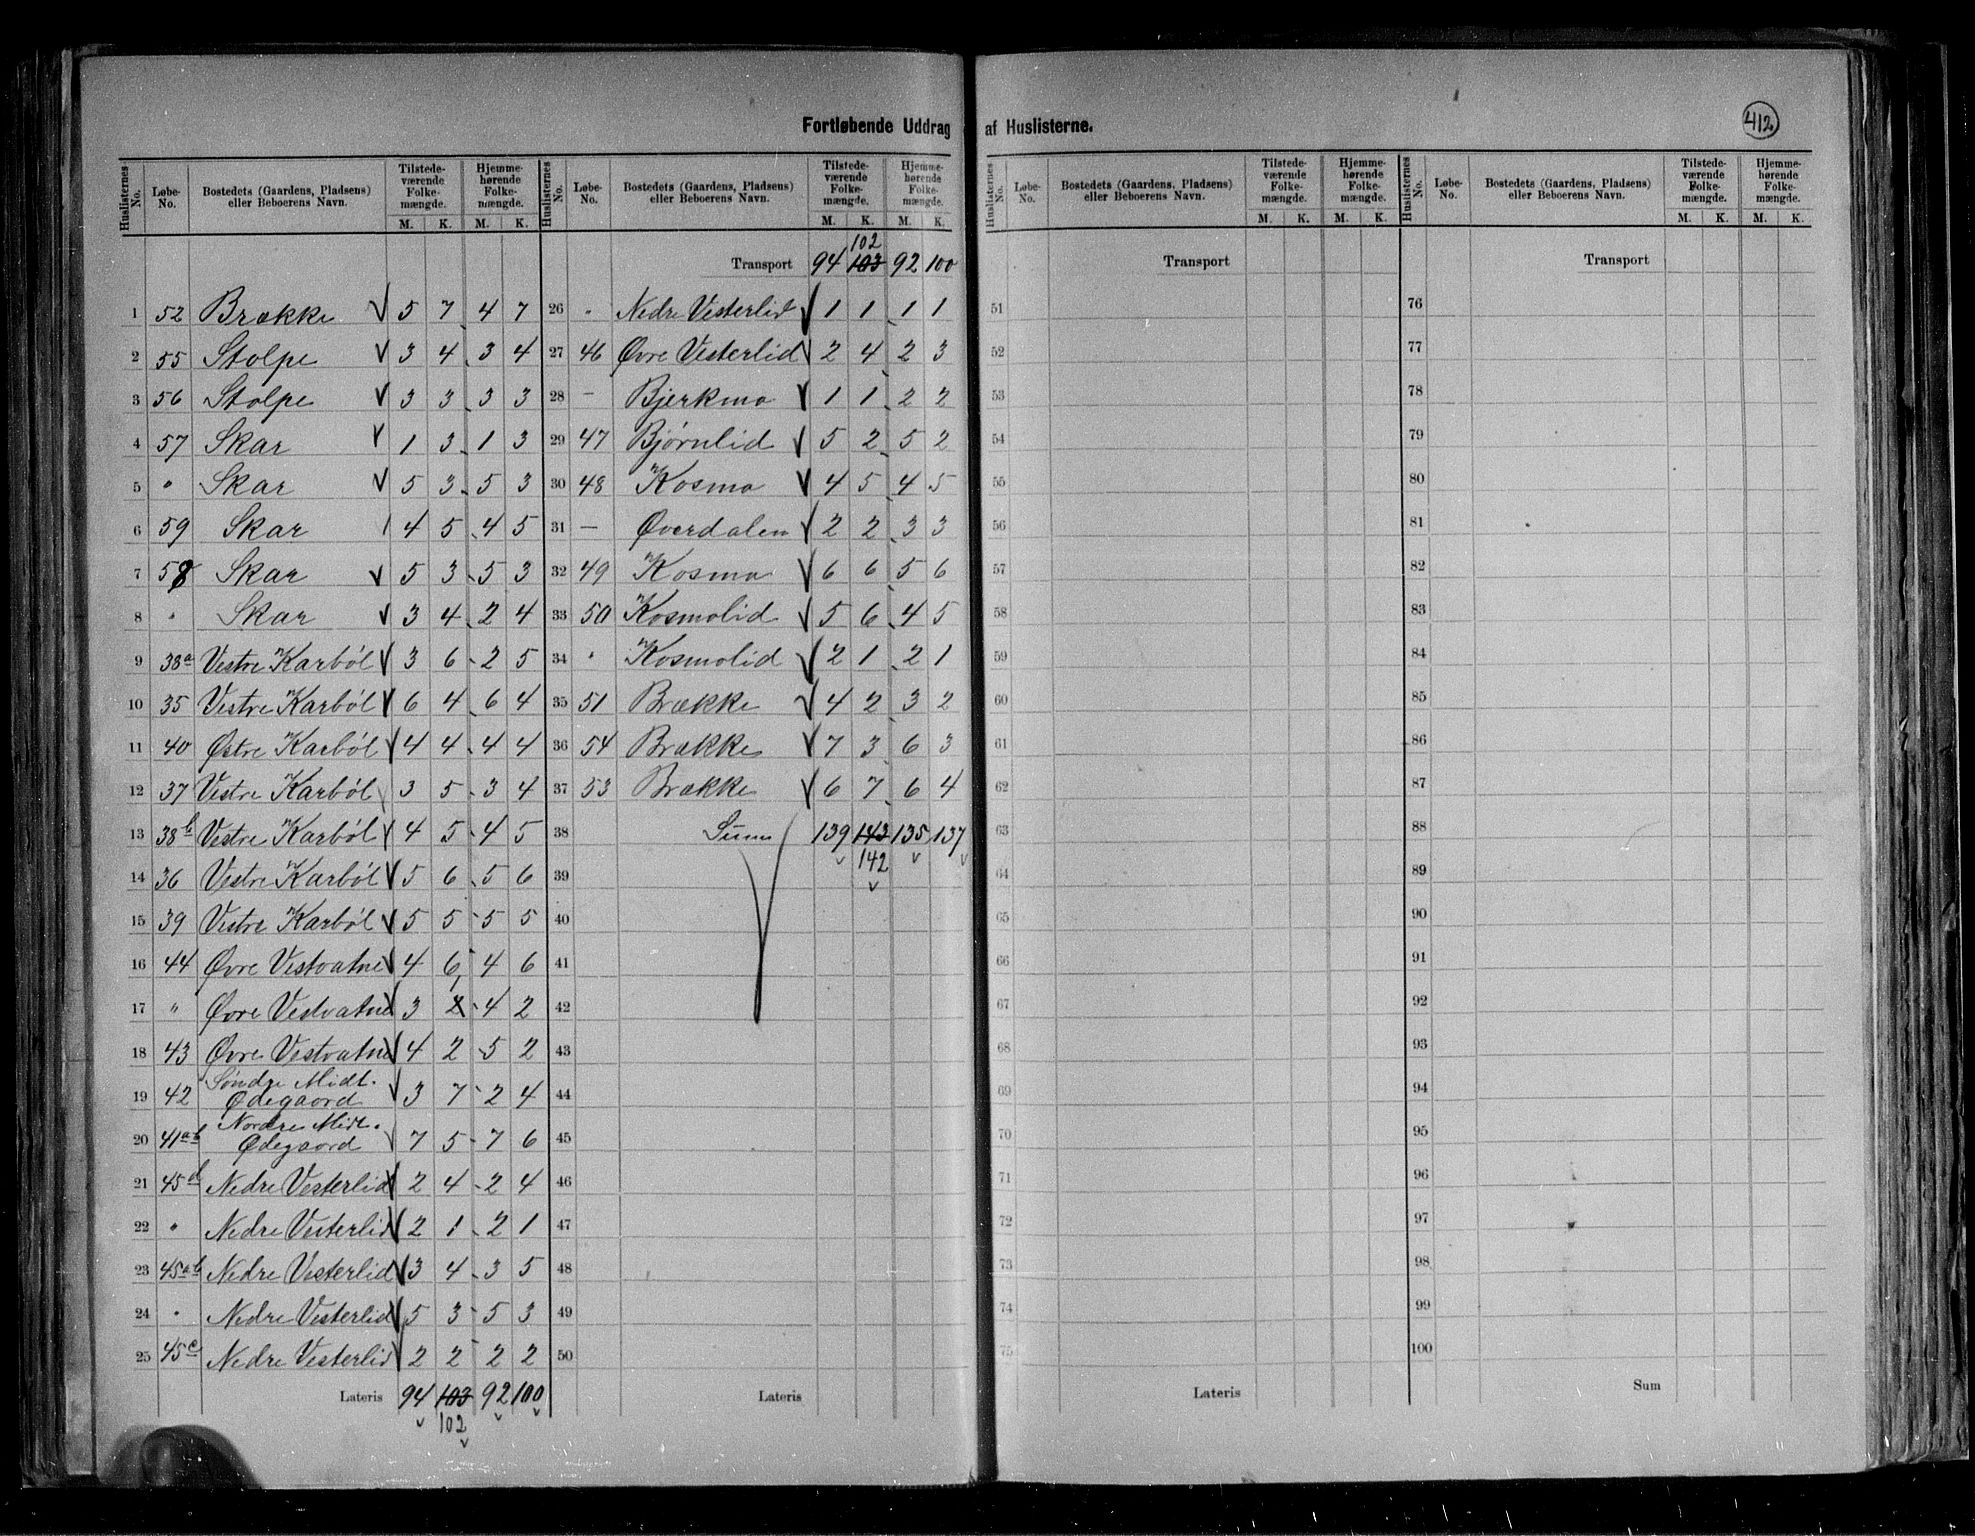 Fortløbende Uddrag af Huslisterne.
412
Huslisternes No. | Løbe-No. | Bostedets (Gaardens, Pladsens) eller Beboerens Navn. | Tilstedeværende Folkemængde. M. K. | Hjemmehørende Folkemængde. M. K.
1 52 Brække V 5 7 4 7
2 55 Stolpe V 3 4 3 4
3 56 Stolpe V 3 3 3 3
4 57 Skar V 1 3 1 3
5 " Skar V 5 3 5 3
6 59 Skar / 4 5 4 5
7 58 Skar V 5 3 5 3
8 " Skar V 3 4 2 4
9 38a Vestre Karbøl V 3 6 2 5
10 35 Vestre Karbøl V 6 4 6 4
11 40 Østre Karbøl V 4 4 4 4
12 37 Vestre Karbøl 3 5 3 4
13 38b Vestre Karbøl V 4 5 4 5
14 36 Vestre Karbøl V 5 6 5 6
15 39 Vestre Karbøl V 5 5 5 5
16 44 Øvre Vestvatne V 4 6 4 6
17 " Øvre Vestvatne V 3 1 2 4 2
18 43 Øvre Vestvatne V 4 2 5 2
19 42 Søndre Midt. Ødegaard V 3 7 2 4
20 41ab Nordre Midt. Ødegaard V 7 5 7 6
21 45d Nedre Vesterlid V 2 4 2 4
22 " Nedre Vesterlid V 2 1 2 1
23 45ab Nedre Vesterlid V 3 4 3 5
24 " Nedre Vesterlid V 5 3 5 3
25 45c Nedre Vesterlid V 2 2 2 2
Lateris 94 103 92 100
102
Huslisternes No. | Løbe-No. | Bostedets (Gaardens, Pladsens) eller Beboerens Navn. | Tilstedeværende Folkemængde. M. K. | Hjemmehørende Folkemængde. M. K.
102
Transport 94 103 92 100
26 " Nedre Vesterlid V 1 1 1 1
27 46 Øvre Vesterlid V 2 4 2 3
28 – Bjerkmo V 1 1 2 2
29 47 Bjørnlid V 5 2 5 2
30 48 Kosmo V 4 5 4 5
31 – Øverdalen V 2 2 3 3
32 49 Kosmo V 6 6 5 6
33 50 Kosmolid V 5 6 4 5
34 " Kosmolid V 2 1 2 1
35 51 Brække V 4 2 3 2
36 54 Brække V 7 3 6 3
37 53 Brække V 6 7 6 4
38 Sum 139 143 135 137
142
39
40
41
42
43
44
45
46
47
48
49
50
Lateris
Huslisternes No. | Løbe-No. | Bostedets (Gaardens, Pladsens) eller Beboerens Navn. | Tilstedeværende Folkemængde. M. K. | Hjemmehørende Folkemængde. M. K.
Transport
51
52
53
54
55
56
57
58
59
60
61
62
63
64
65
66
67
68
69
70
71
72
73
74
75
Lateris
Huslisternes No. | Løbe-No. | Bostedets (Gaardens, Pladsens) eller Beboerens Navn. | Tilstedeværende Folkemængde. M. K. | Hjemmehørende Folkemængde. M. K.
Transport
76
77
78
79
80
81
82
83
84
85
86
87
88
89
90
91
92
93
94
95
96
97
98
99
100
Sum